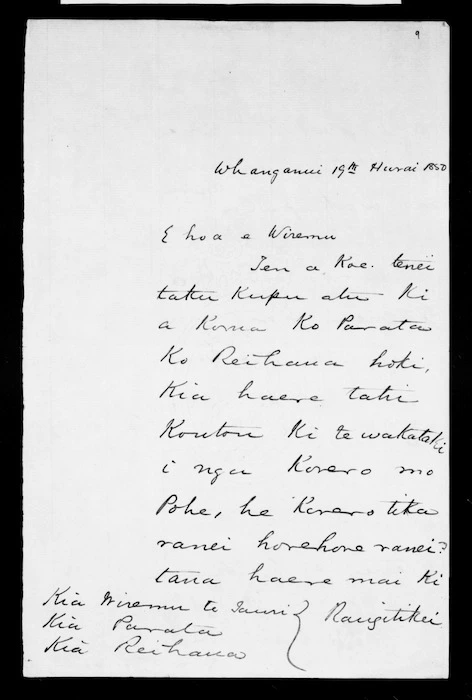 9
Whanganui 19th Hurai 1850
E hoa e Wiremu
Ten a Koe. tenei
taku Kupu atu Ki
a Korua Ko Parata
Ko Reihana hoki,
Kia haere tahi
Koutou Ki te wakataki
i nga Korero mo
Pohe, he Korero tika
ranei horehore ranei?
tana haere mai Ki
Kia Wiremu te Tauri } Rangitikei
Kia Parata
Kia Reihana